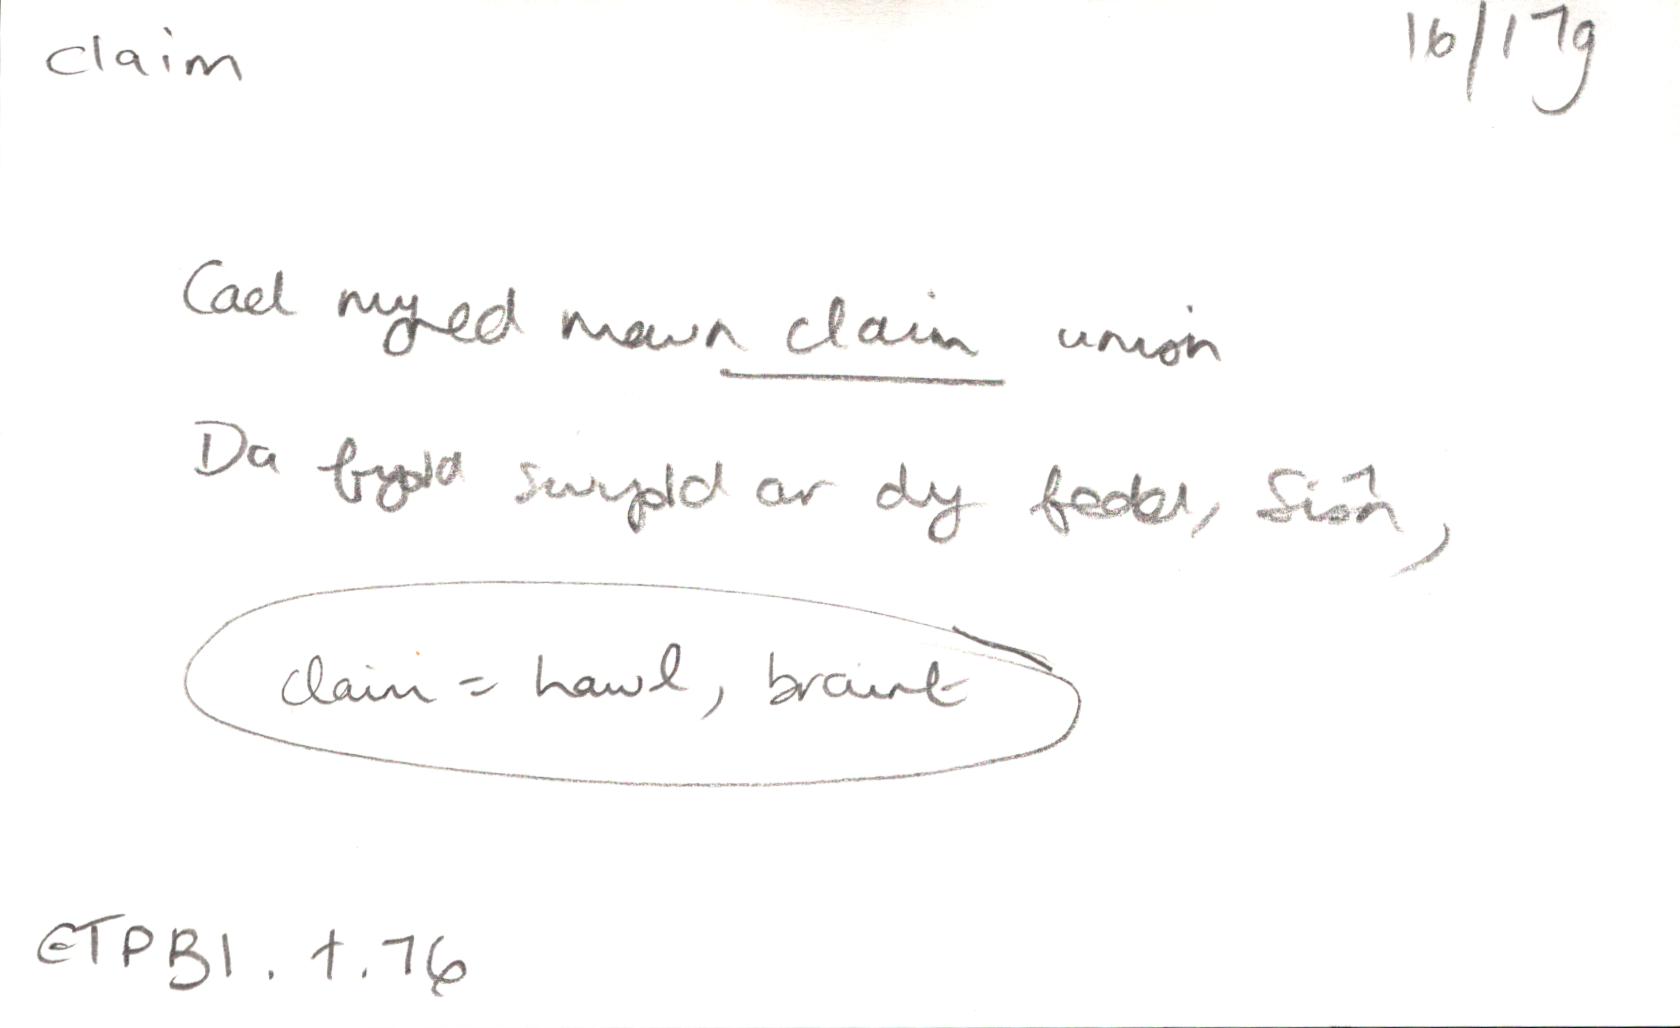 claim 16/17g
Cael myned mewn claim union
Da fydd swydd ar dy fedd, Siôn,
claim = hawl, braint
ETPB1. t.76